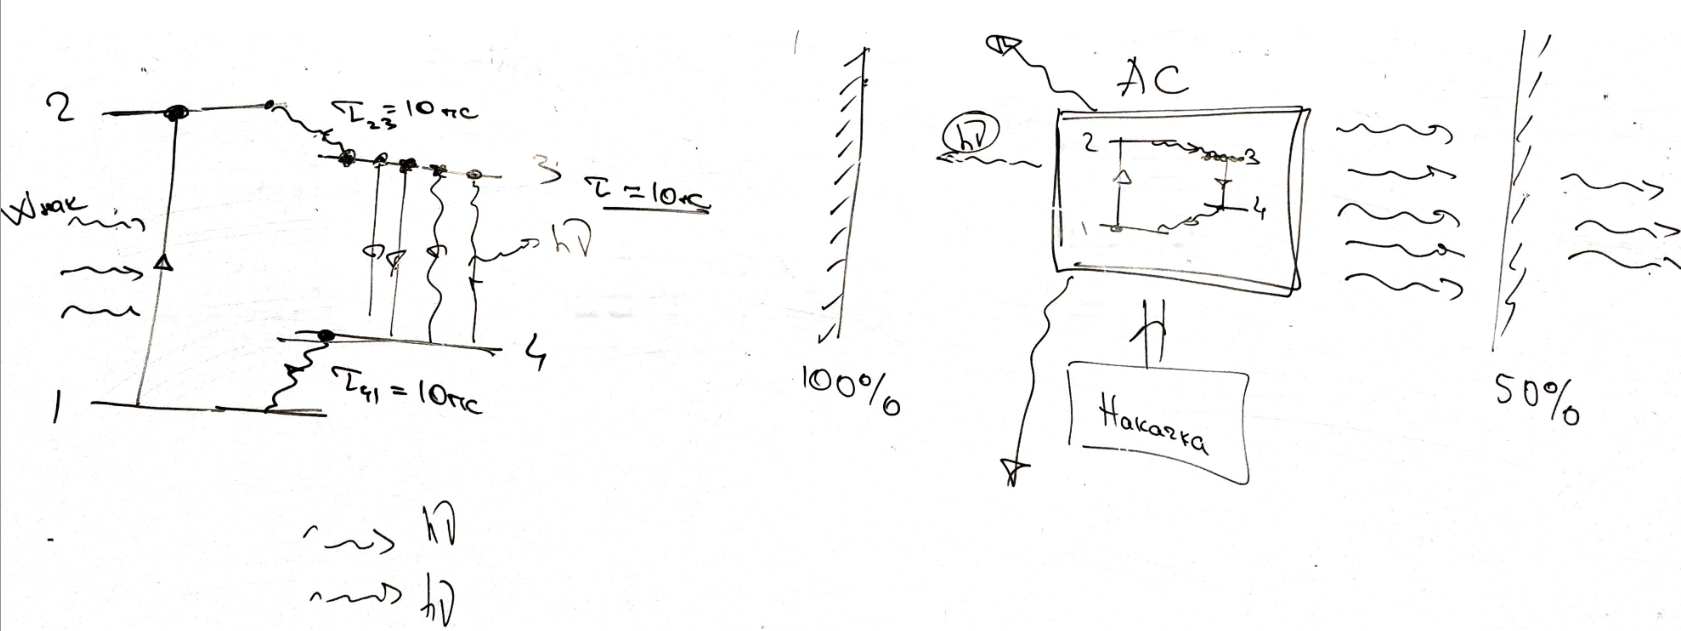 2
τ₂₃ = 10 пс
3
τ = 10 нс
Wнак
hν
4
τ₄₁ = 10 пс
1
hν
hν
АС
hν
2
3
4
1
100%
50%
Накачка